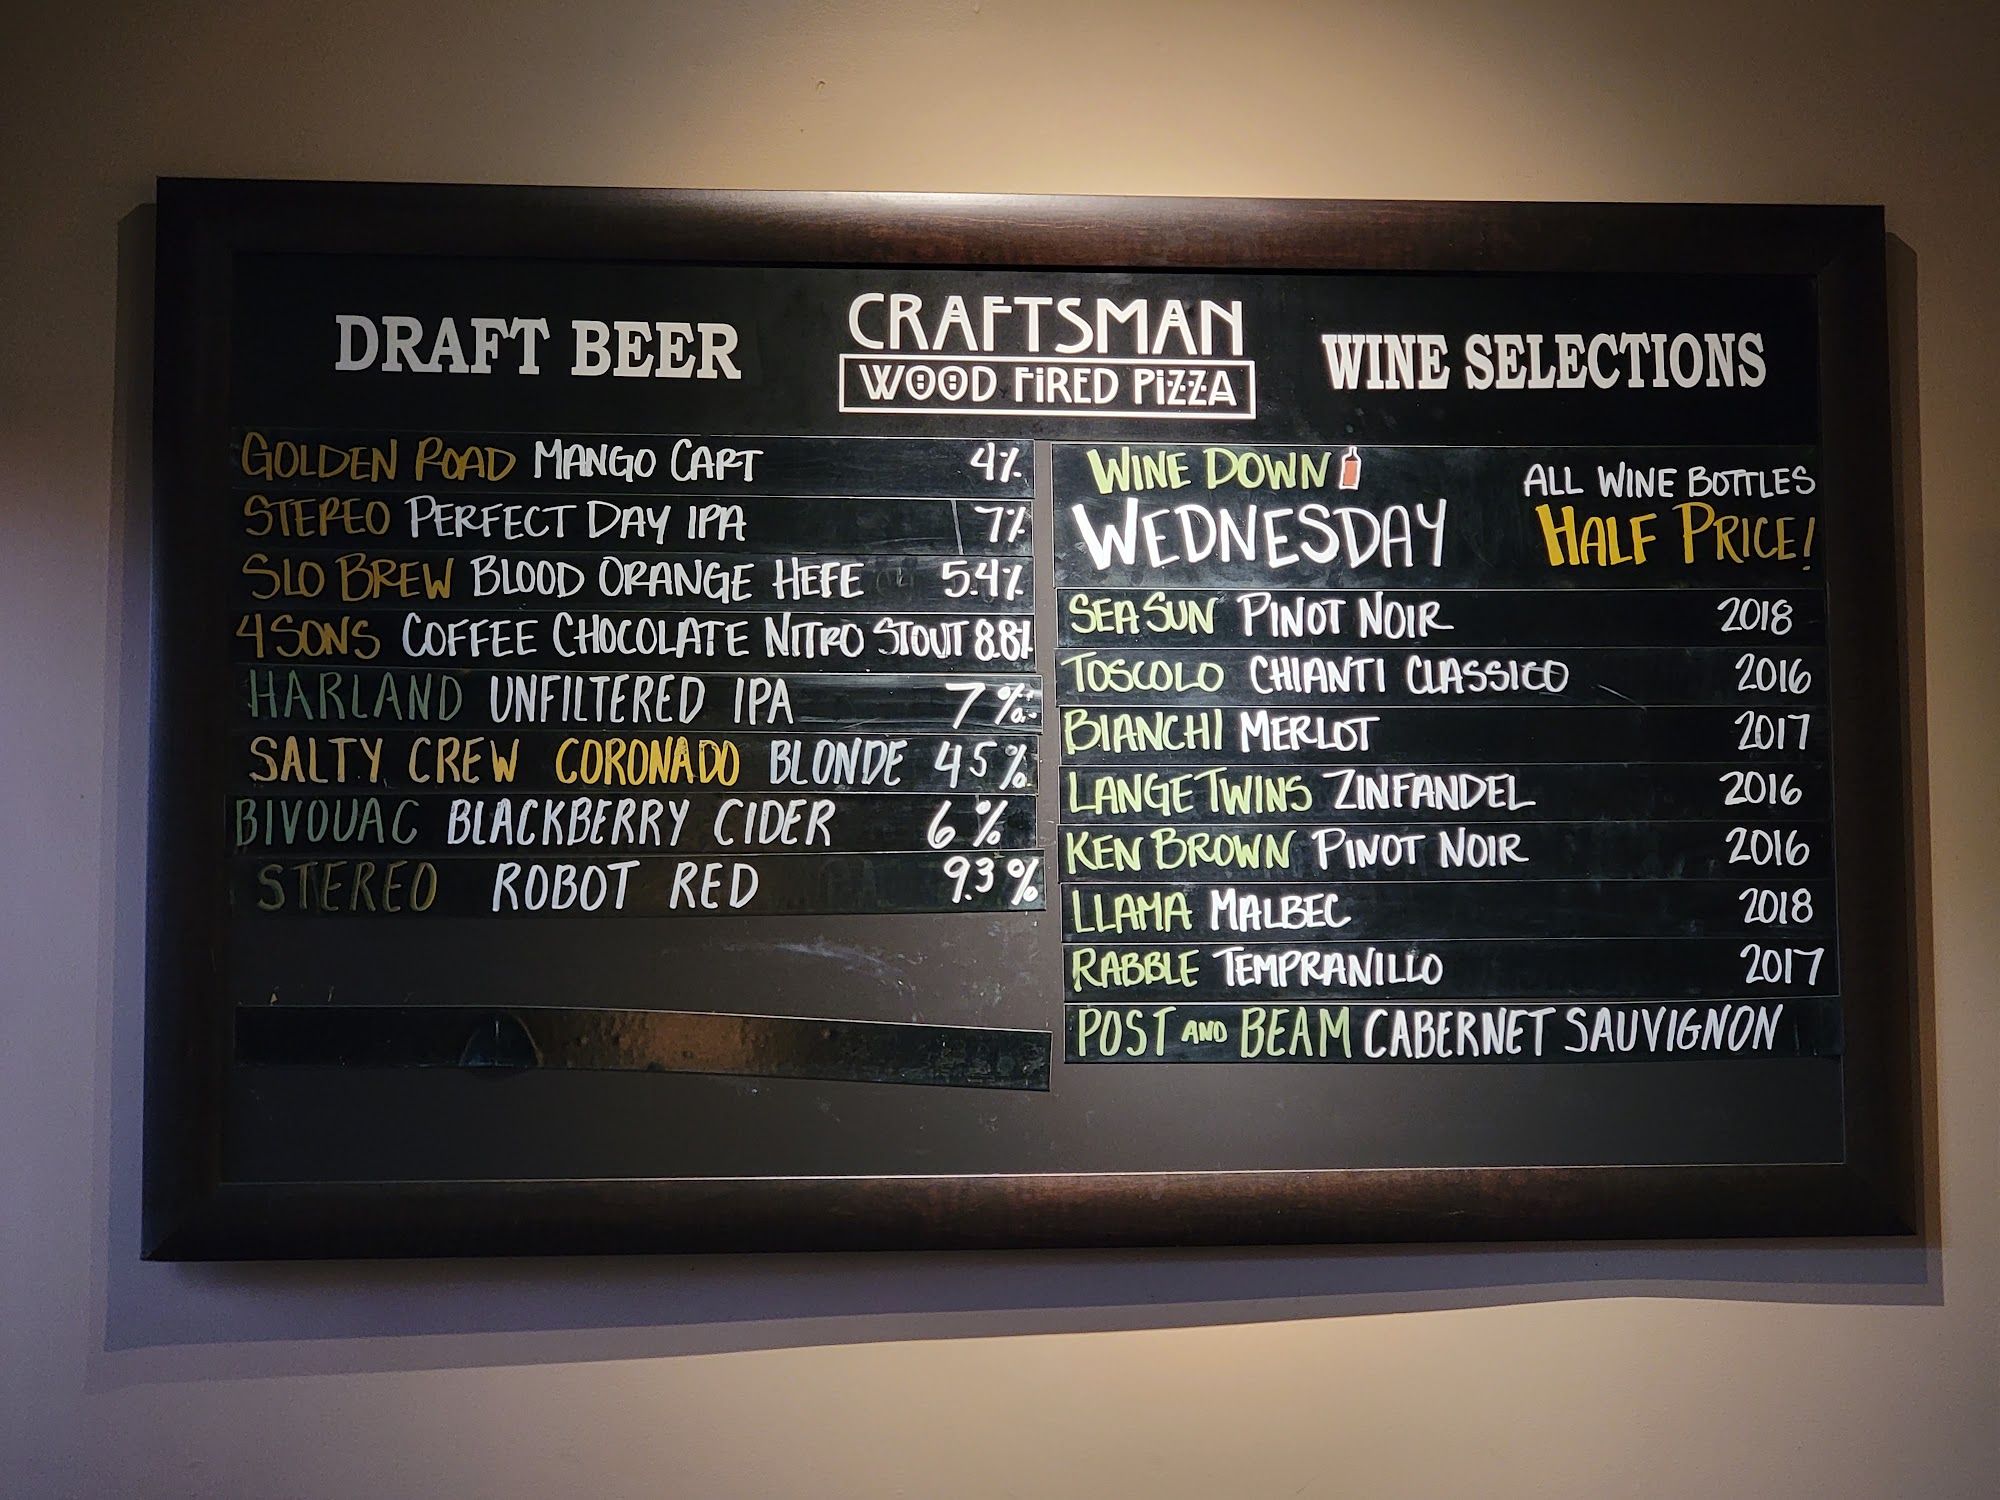 CRAFTSMAN
WOOD FIRED PIZZA
DRAFT BEER
GOLDEN ROAD MANGO CART 4%
STEREO PERFECT DAY IPA 7%
SLO BREW BLOOD ORANGE HEFE 5.4%
4 SONS COFFEE CHOCOLATE NITRO STOUT 8.8%
HARLAND UNFILTERED IPA 7%
SALTY CREW CORONADO BLONDE 4.5%
BIVOUAC BLACKBERRY CIDER 6%
STEREO ROBOT RED 9.3%
WINE SELECTIONS
WINE DOWN
WEDNESDAY
ALL WINE BOTTLES
HALF PRICE!
SEA SUN PINOT NOIR 2018
TOSCOLO CHIANTI CLASSICO 2016
BIANCHI MERLOT 2017
LANGE TWINS ZINFANDEL 2016
KEN BROWN PINOT NOIR 2016
LLAMA MALBEC 2018
RABBLE TEMPRANILLO 2017
POST AND BEAM CABERNET SAUVIGNON